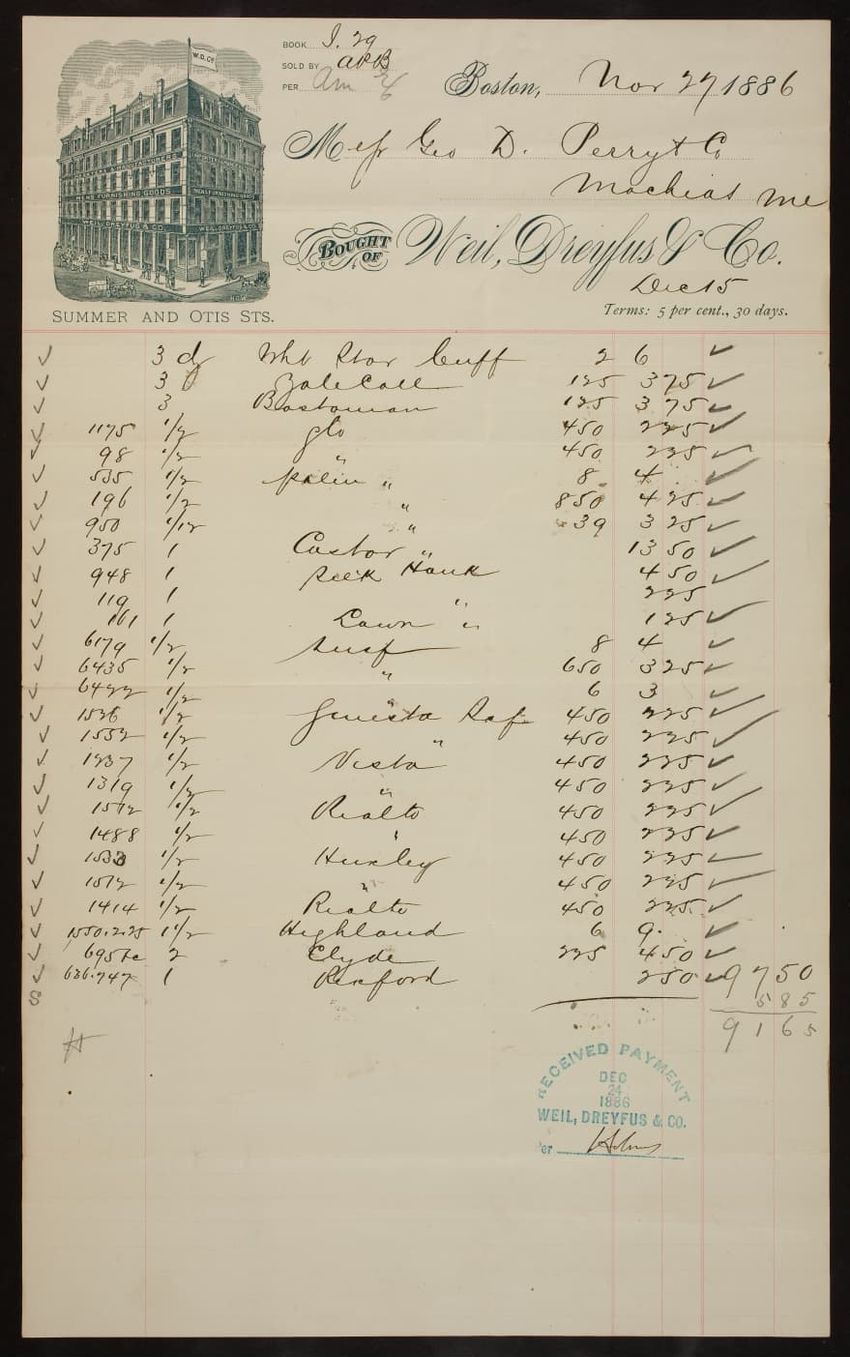 BOOK J. 29
SOLD BY
PER Am
W.D.Co
Boston, Nov 27 1886
Mess Geo D. Perry & Co
Machias Me
MENS FURNISHING GOODS
WEIL, DREYFUS & CO.
BOUGHT OF Weil, Dreyfus & Co.
Dec 15
SUMMER AND OTIS STS.
Terms: 5 per cent., 30 days.
3 d Wht Star Cuff 2 6
3 Yale Coll 125 375
3 Bostonian 125 375
1175 1/2 glo 450 225
98 1/2 " 450 225
535 1/2 " 8 4
196 1/2 " 850 425
950 1/12 " 39 325
375 1 Castor " 1350
948 1 Silk Hank 450
119 1 " 225
161 1 Lawn " 125
6179 1/2 8 4
6435 1/2 " 650 325
6422 1/2 6 3
1526 1/2 Genesta Scf 450 225
1552 1/2 " 450 225
1237 1/2 Vesta 450 225
1319 1/2 " 450 225
1512 1/2 Rialto 450 225
1488 1/2 " 450 225
1533 1/2 Huxley 450 225
1512 1/2 " 450 225
1414 1/2 Rialto 450 225
1550.2.25 1 1/2 Highland 6 9
695 2 Clyde 225 450
636.747 1 Rexford 250 9750
585
9165
H
RECEIVED PAYMENT
DEC
24
1886
WEIL, DREYFUS & CO.